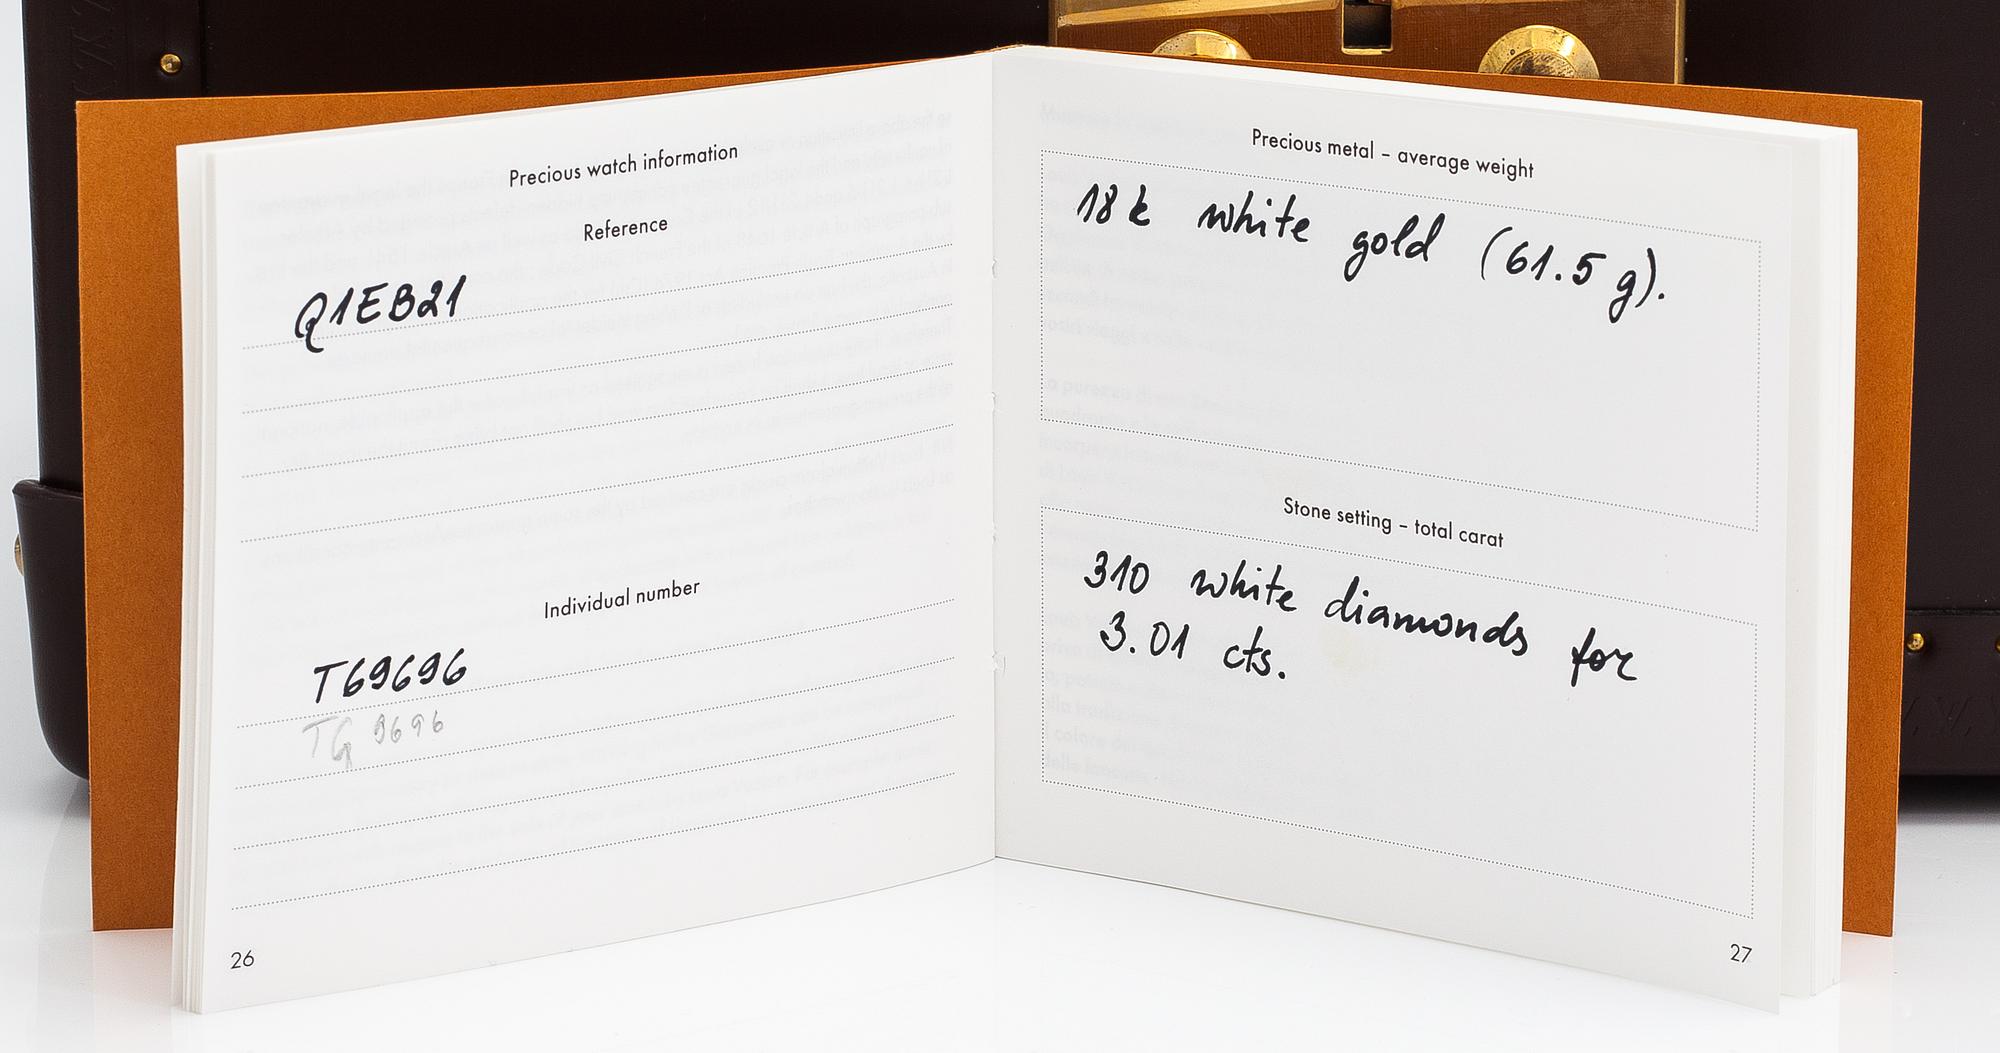 Precious watch information
Reference
Q1EB21
Individual number
T69696
TG 9696
26
Precious metal – average weight
18k white gold (61.5 g).
Stone setting – total carat
310 white diamonds for
3.01 cts.
27